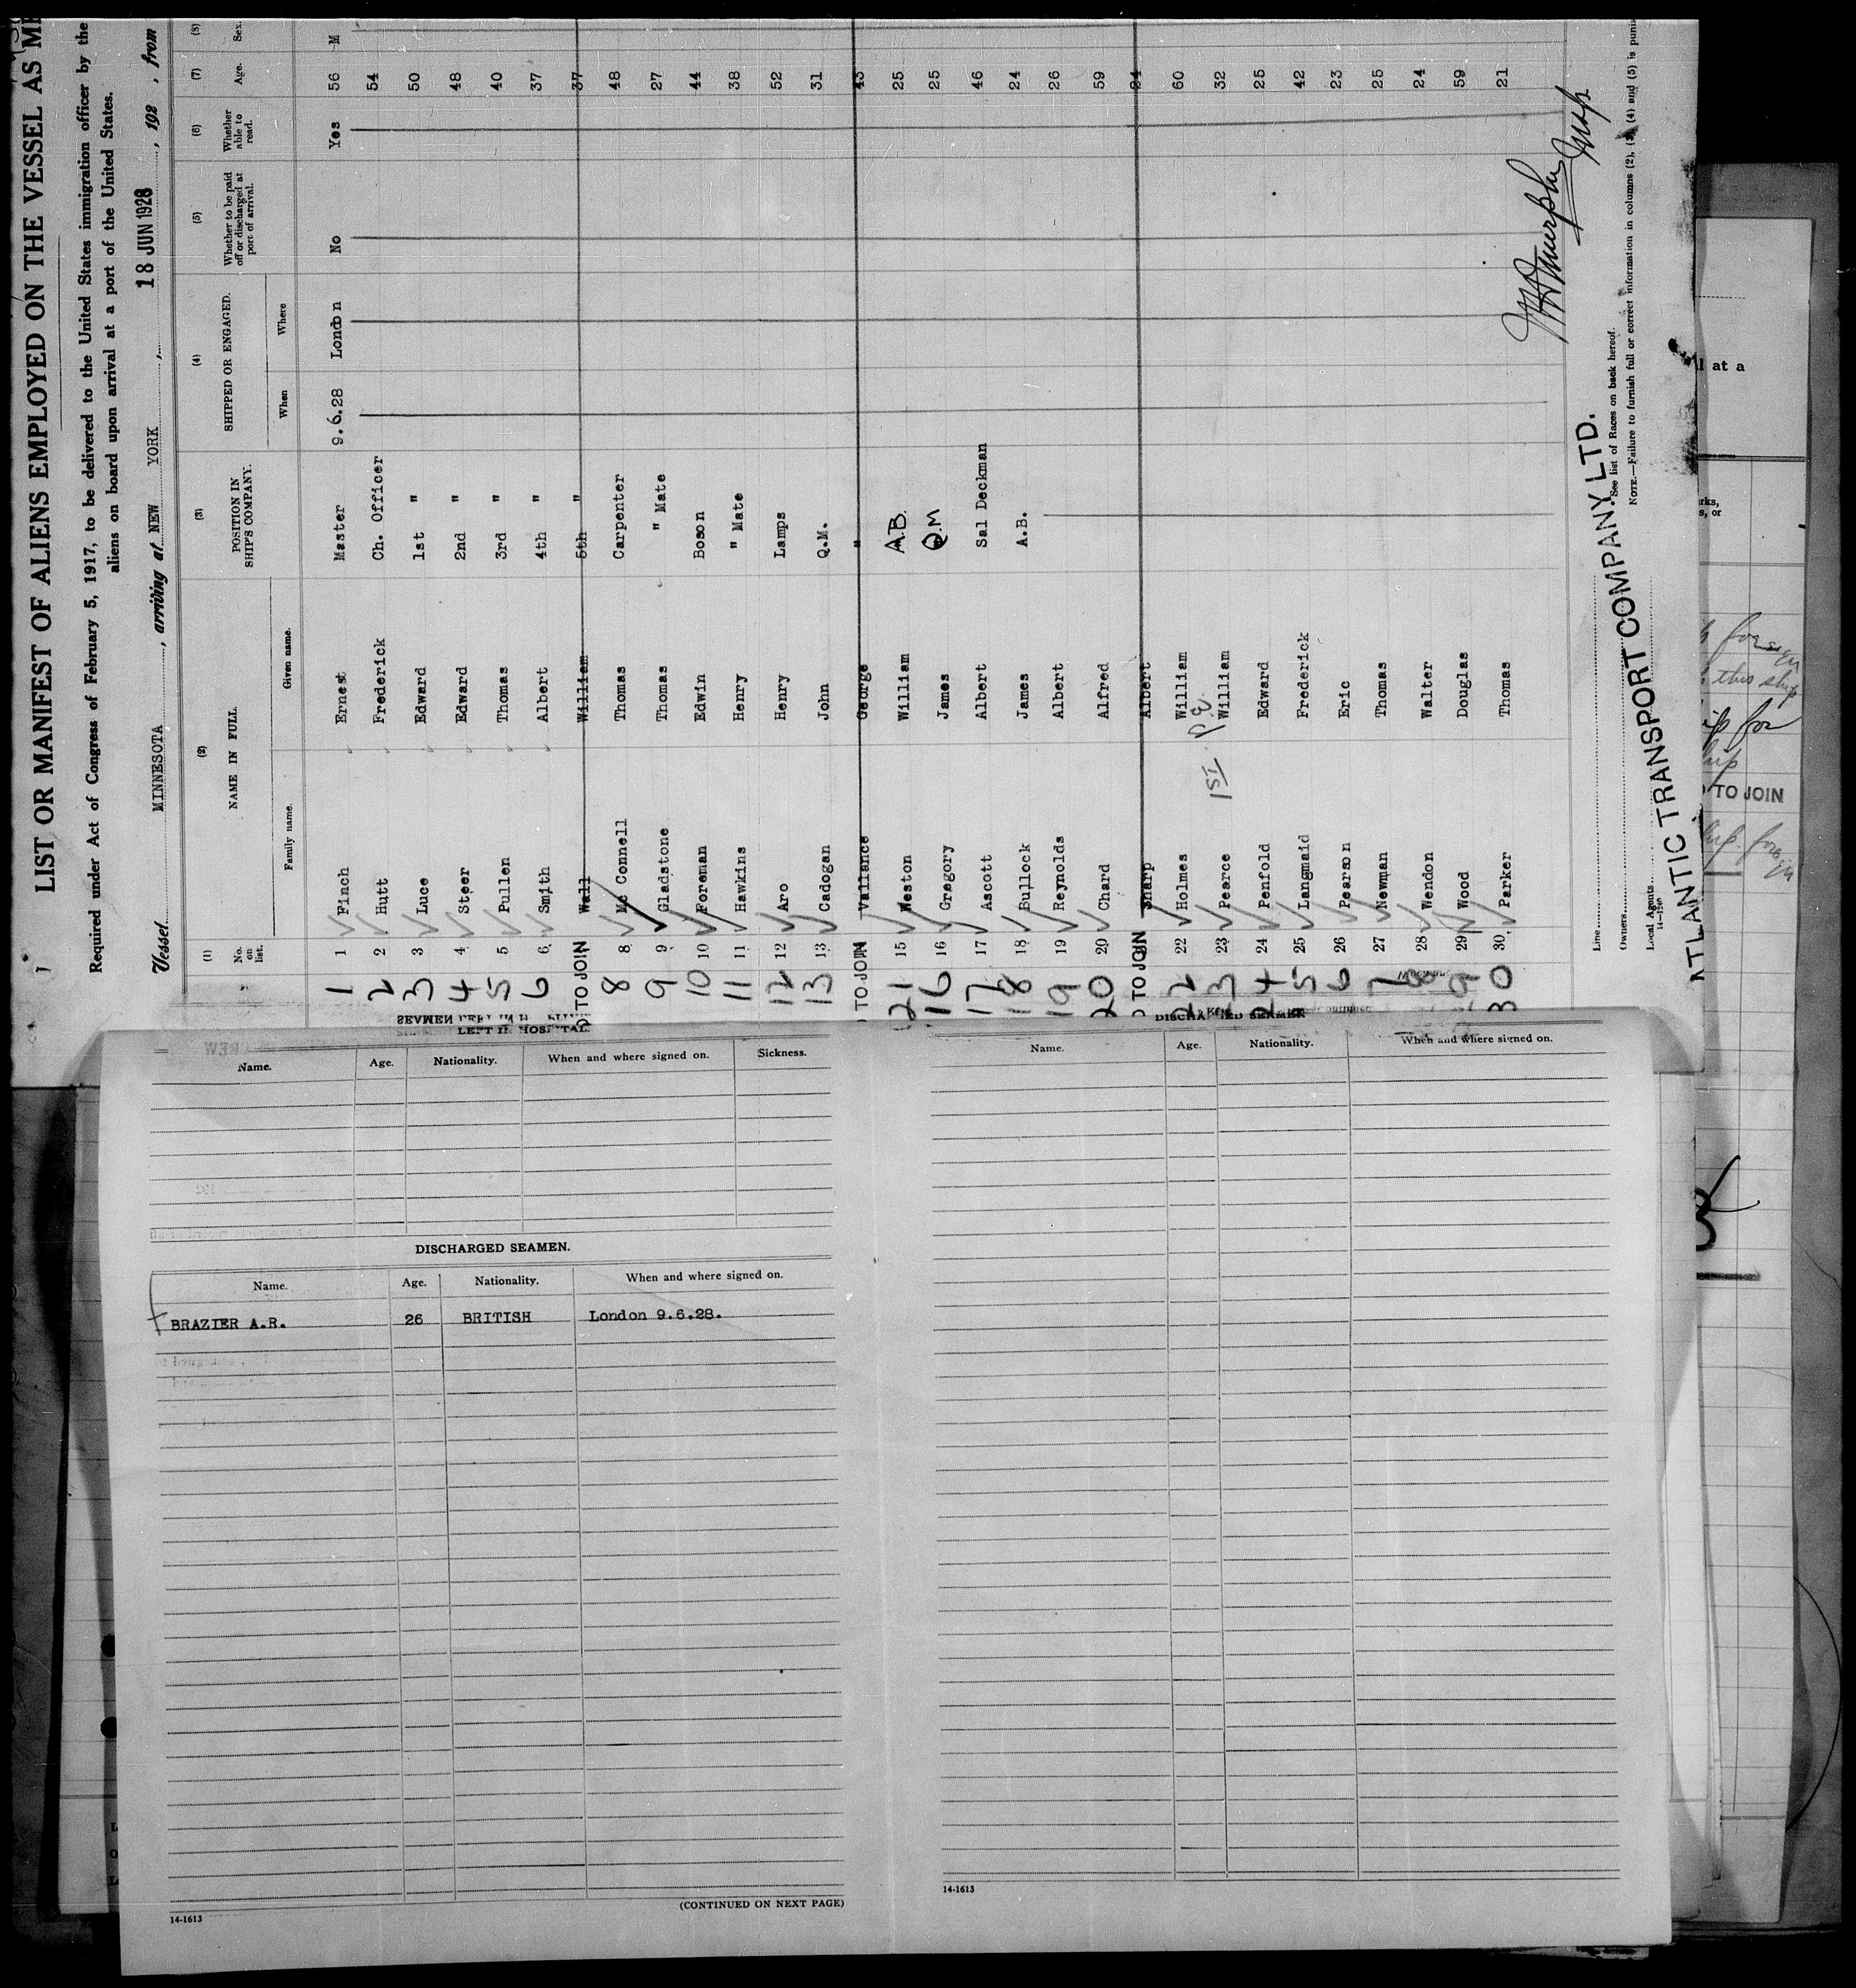 LIST OR MANIFEST OF ALIENS EMPLOYED ON THE VESSEL AS
Required under Act of Congress of February 5, 1917, to be delivered to the United States immigration officer by the
aliens on board upon arrival at a port of the United States.
Vessel MINNESOTA, arriving at NEW YORK, 18 JUN 1928, 192 , from
(1) (2) (3) (4) (5) (6) (7) (8)
No. on list. NAME IN FULL. POSITION IN SHIP'S COMPANY. SHIPPED OR ENGAGED. Whether to be paid off or discharged at port of arrival. Whether able to read. Age. Sex.
Family name. Given name. When Where
1 1 Finch Ernest Master 9.6.28 London No Yes 56 M
2 2 Hutt Frederick Ch. Officer 54
3 3 Luce Edward 1st " 50
4 4 Steer Edward 2nd " 48
5 5 Pullen Thomas 3rd " 40
6 6 Smith Albert 4th " 37
TO JOIN Wall William 5th " 37
8 8 Mc Connell Thomas Carpenter 48
9 9 Gladstone Thomas " Mate 27
10 10 Foreman Edwin Boson 44
11 11 Hawkins Henry " Mate 38
12 12 Aro Henry Lamps 52
13 13 Cadogan John Q.M. 31
TO JOIN 14 Vallance George " 43
15 Weston William A.B. 25
16 16 Gregory James Q.M 25
17 17 Ascott Albert Sal Deckman 46
18 18 Bullock James A.B. 24
19 19 Reynolds Albert 26
20 20 Chard Alfred 59
TO JOIN Sharp Albert 24
22 22 Holmes William 60
1ST
23 Pearce William 32
24 24 Penfold Edward 25
5 25 Langmaid Frederick 42
6 26 Pearson Eric 23
7 27 Newman Thomas 25
8 28 Wendon Walter 24
9 29 Wood Douglas 59
30 30 Parker Thomas 21
Line
Owners
Local Agents
14-1240
ATLANTIC TRANSPORT COMPANY. LTD.
See list of Races on back hereof.
NOTE.—Failure to furnish full or correct information in columns (2), (3), (4) and (5) is
LEFT IN HOSPITAL
Name. Age. Nationality. When and where signed on. Sickness.
DISCHARGED SEAMEN.
Name. Age. Nationality. When and where signed on.
BRAZIER A.R. 26 BRITISH London 9.6.28.
(CONTINUED ON NEXT PAGE)
14-1613
DISCHARGED SEAMEN
Name. Age. Nationality. When and where signed on.
14-1613
at a
s, or
this ship
for
TO JOIN